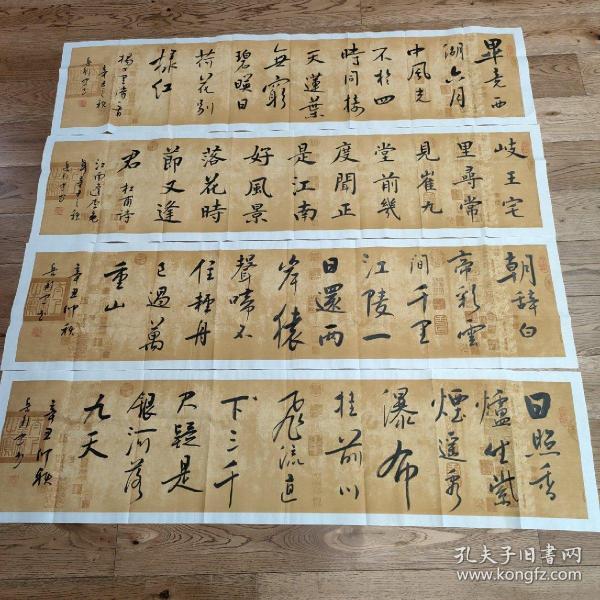 畢竟西
湖六月
中風光
不於四
時同接
天蓮葉
無窮
碧暎日
荷花別
樣紅
辛丑之秋
岐王宅
里尋常
見崔九
堂前幾
度聞正
是江南
好風景
落花時
節又逢
君 杜甫詩
朝辭白
帝彩雲
間千里
江陵一
日還兩
岸猿
聲啼不
住輕舟
已過萬
重山
辛丑仲秋
日照香
爐生紫
煙遙看
瀑布
挂前川
飛流直
下三千
尺疑是
銀河落
九天
辛丑仲秋
孔夫子旧书网
www.kongfz.com